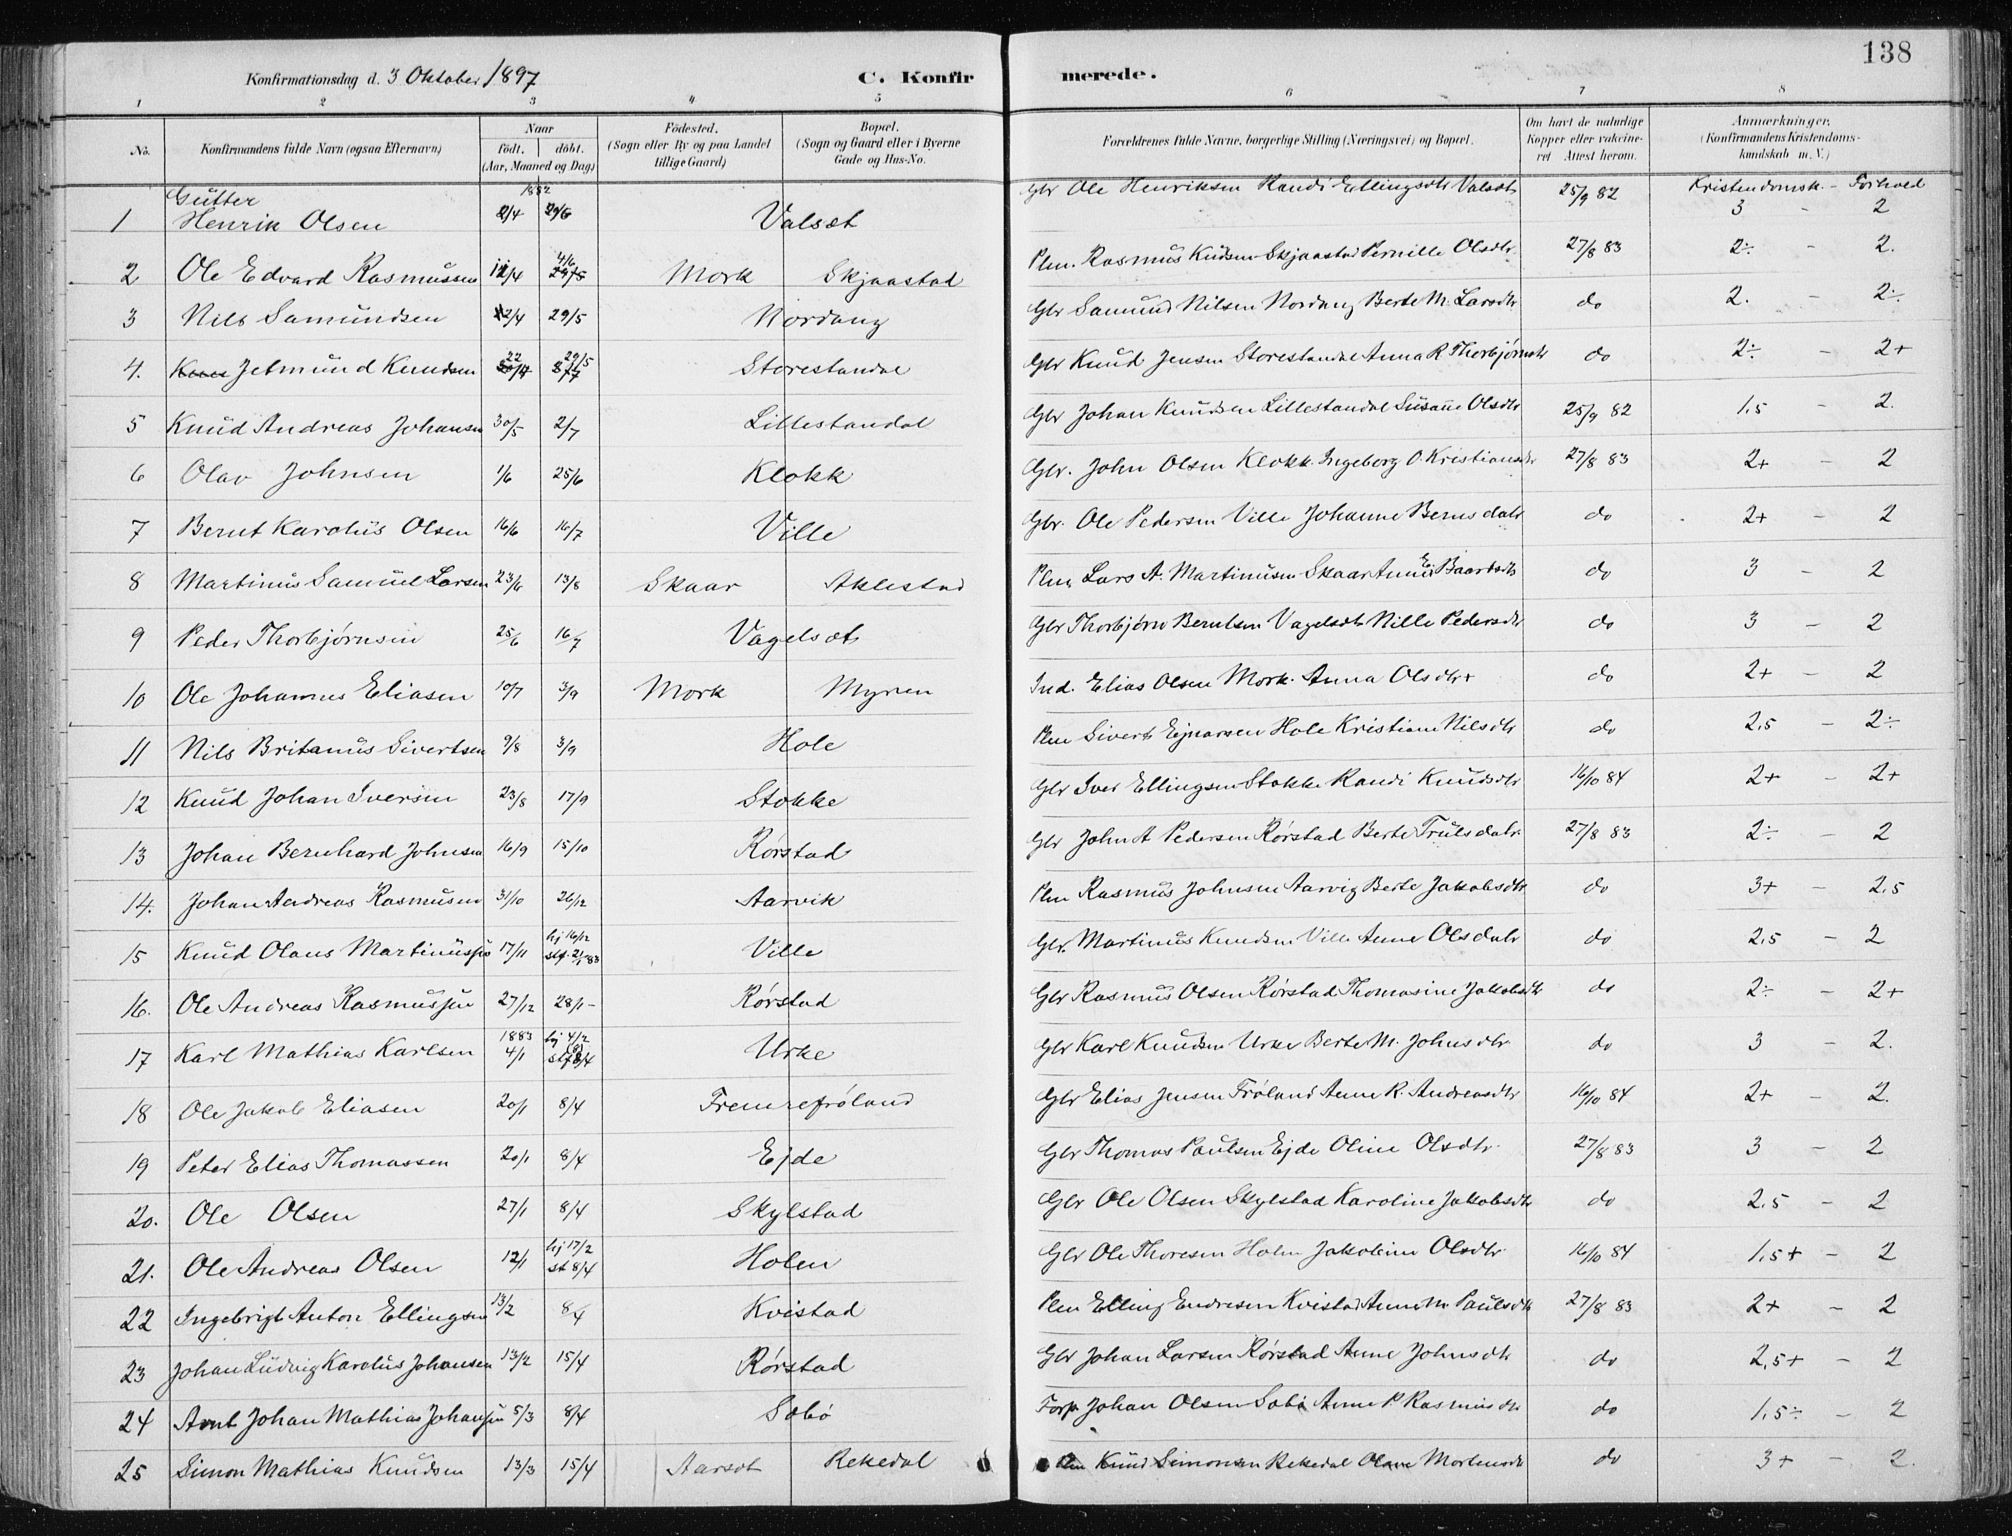 138
Konfirmationsdag d. 3 Oktober 1897 C. Konfirmerede.
1 2 3 4 5 6 7 8
No. Konfirmandens fulde Navn (ogsaa Efternavn) Naar født. døbt. (Aar, Maaned og Dag) Fødested. (Sogn eller By og paa Landet tillige Gaard) Bopæl. (Sogn og Gaard eller i Byerne Gade og Hus-No. Forældrenes fulde Navne, borgerlige Stilling (Næringsvei) og Bopæl. Om havt de naturlige Kopper eller vakcineret Attest herom. Anmerkninger, (Konfirmandens Kristendomskundskab m. V.)
Gutter 1882 Kristendomsk. - Forhold
1 Henrik Olsen 2/4 29/5 Valsæt Gbr Ole Henriksen Randi Ellingsdtr Valsæt 25/9 82 3 - 2
2 Ole Edvard Rasmussen 11/4 4/6 Mork Skjaastad Plm. Rasmus Knudsen Skjaastad Pernille Olsdtr. 27/8 83 2÷ - 2.
3 Nils Samundsen 12/4 29/5 Nordang Gbr Samund Nilsen Nordang Berte M. Larsdtr do 2. - 2÷
4. Jetmund Knudsen 22/4 29/5 Storestandal Gbr Knud Jensen Storestandal Anna R Thorbjørnsdtr do 2÷ - 2+
5 Knud Andreas Johansen 30/5 2/7 Lillestandal Gbr Johan Knudsen Lillestandal Susane Olsdtr 25/9 82 1,5 - 2.
6 Olav Johnsen 1/6 25/6 Klokk Gbr. John Olsen Klokk. Ingeborg O. Kristiansdtr 27/8 83 2+ - 2
7 Bernt Karolus Olsen 16/6 16/7 Ville Gbr. Ole Pedersen Ville Johanne Berns datr do 2+ - 2
8 Martinus Samuel Larsen 23/6 13/8 Skaar Aklestad Plm Lars A. Martinusen Skaar Anne E Baardsdtr do 3 - 2
9 Peder Thorbjørnsen 25/6 16/7 Vagelsæt Gbr Thorbjørn Berntsen Vagelsæt Nille Pedersdtr do 3 - 2
10 Ole Johannes Eliasen 10/7 3/9 Mork Myren Ind. Elias Olsen Mork. Anna Olsdtr+ do 2+ - 2
11 Nils Britanus Sivertsen 9/8 3/9 Hole Plm Sivert Ejnarsen Hole Kristiane Nilsdtr do 2,5 - 2÷
12 Knud Johan Iversen 23/8 17/9 Stokke Gbr Iver Ellingsen Stokke Randi Knudsdtr 16/10 84 2+ - 2+
13 Johan Bernhard Johnsen 16/9 15/10 Rørstad Gbr John A Pedersen Rørstad Berte Truls datr 27/8 83 2÷ - 2
14. Johan Andreas Rasmusen 31/10 26/12 Aarvik Plm Rasmus Johnsen Aarvig Berte Jakobsdtr do 3+ - 2,5
15 Knud Olaus Martinussen 17/11 hj 16/12 stf. 2/1 83 Ville Gbr. Martinus Knudsen Ville Anne Olsdatr do 2,5 - 2
16. Ole Andreas Rasmussen 27/12 28/1 - Rørstad Gbr Rasmus Olsen Rørstad Thomasine Jakobsdtr do 2÷ - 2+
17 Karl Mathias Karlsen 1883 4/1 hj 4/2 stf 8/4 Urke Gbr Karl Knudsen Urke Berte M. Johnsdtr do 3 - 2.
18 Ole Jakob Eliasen 20/1 8/4 Fremrefrøland Gbr Elias Jensen Frøland Anne R. Andreasdtr 16/10 84 2+ - 2.
19 Peter Elias Thomassen 20/1 8/4 Ejde Gbr Thomas Paulsen Ejde Oline Olsdtr. 27/8 83 3 - 2
20. Ole Olsen 27/1 8/4 Skylstad Gbr Ole Olsen Skylstad Karoline Jakobsdtr do 2,5 - 2
21. Ole Andreas Olsen 12/1 hj 17/2 st 8/4 Holen Gbr Ole Thoresen Holen Jakobine Olsdtr. 16/10 84 1,5+ - 2
22 Ingebrigt Anton Ellingsen 13/2 8/4 Kvistad Plm Elling Endresen Kvistad Anne M. Paulsdtr 27/8 83 2+ - 2
23 Johan Ludvig Karolus Johansen 13/2 15/4 Rørstad Gbr Johan Larsen Rørstad Anne Johnsdtr do 2,5+ - 2
24 Arnt Johan Mathias Johansen 5/3 8/4 Sæbø Forp Johan Olsen Sæbø Anne P Rasmusdtr do 1,5÷ - 2
25 Simon Mathias Knudsen 13/3 15/4 Aarsæt Rekedal Plm Knud Simonsen Rekedal Olave Mortensdtr do 3+ - 2.